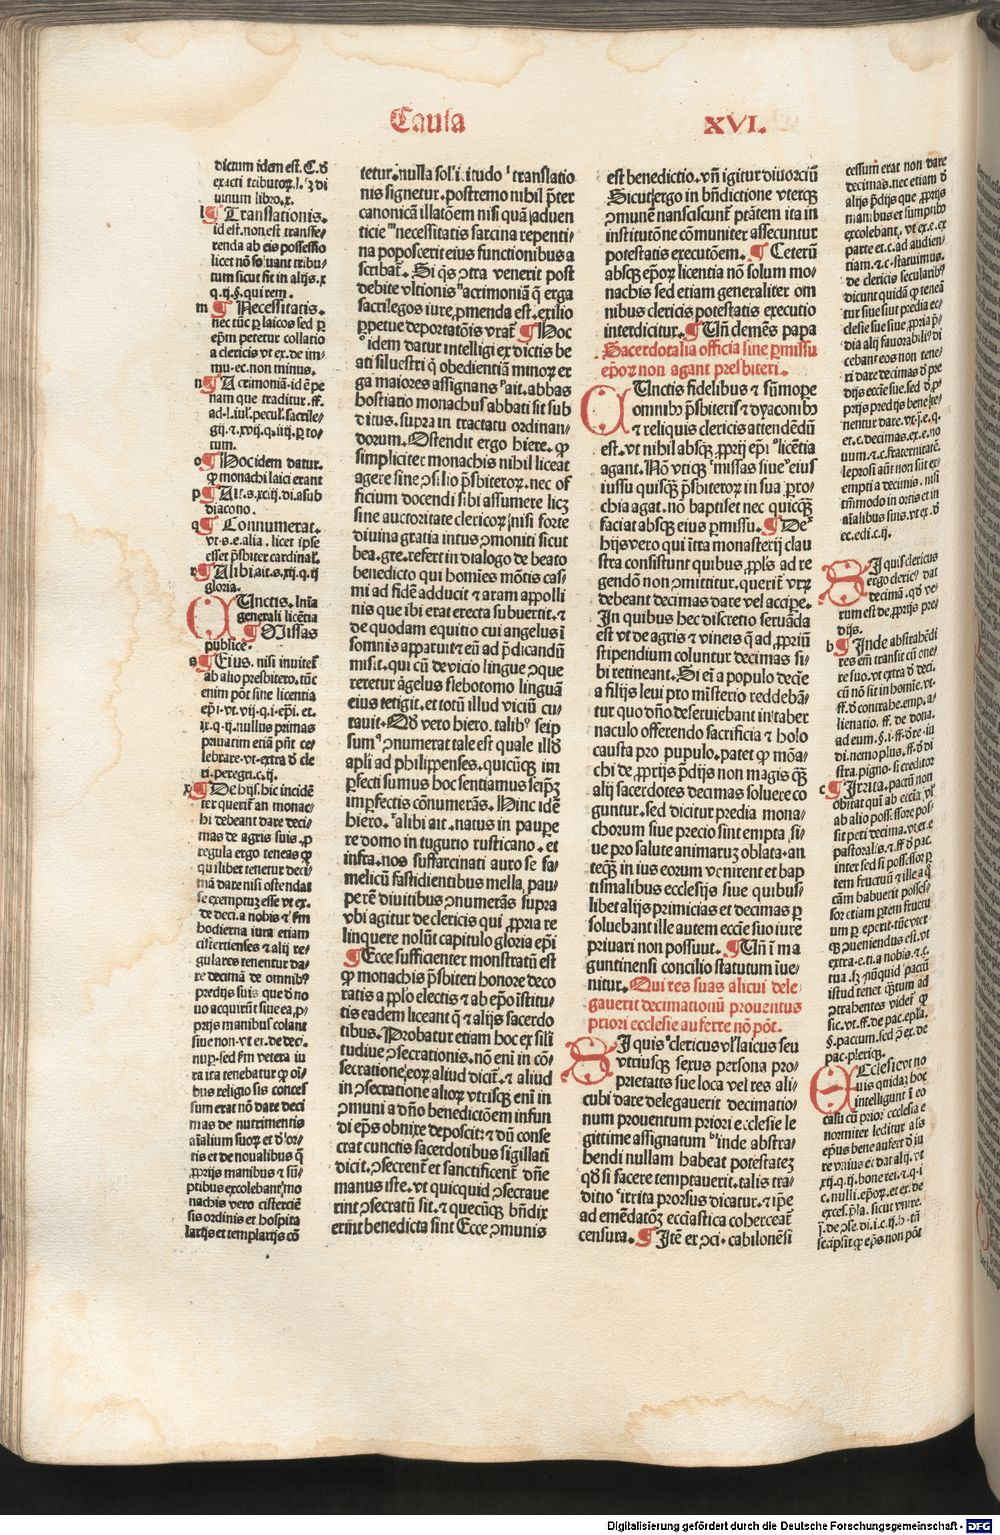 Causa XVI.
dictum idem est. C. đ
exacti tributoꝝ. l. ʒ di
uinum libro. x.
l ¶ Translationis.
id est. non est transfe⸗
renda ab eis possessio
licet nō soluant tribu⸗
tum sicut fit in alijs. x
q. ij. §. qui rem.
m ¶ Necessitatis.
nec tūc ꝑ laicos sed ꝑ
ep̄m petetur collatio
a clericis vt ex. de im⸗
mu. ec. non minus.
n ¶ Acrimoniā. id ē pe
nam que traditur. ff.
ad. l. iul. pecul. sacrile⸗
gij. ⁊ xvij. q. iiij. ꝑ to⸗
tum.
o ¶ Hoc idem datur.
ꝙ monachi laici erant
p ¶ Ait. s. xciij. di. a sub
diacono.
q ¶ Connumerat.
vt. s. e. alia. licet ipse
esset p̄sbiter cardinal̄.
r ¶ Alibi ait. s. xij. q. ij
gloria.
CUnctis. Sine
generali licētia
¶ Missas
publice.
s ¶ Eius. nisi inuitet᷑
ab alio presbitero. tūc
enim pōt sine licentia
ep̄i. vt. vij. q. i. ep̄i. et.
ix. q. ij. nullus primas
priuatim etiā pn̄t ce
lebrare. vt extra đ cle
ri. peregri. c. ij.
x ¶ De hijs. hic incidē
ter querit᷑ an monac⸗
hi debeant dare deci⸗
mas de agris suis. ꝓ
regula ergo teneas ꝙ
quilibet tenetur deci⸗
mā dare nisi ostendat
se exemptuꝫ esse vt ex.
de deci. a nobis ⁊ s̄m
hodierna iura etiam
cistertienses ⁊ alij re⸗
gulares tenentur da⸗
re decimā de omnibꝰ
predijs suis que đ no
uo acquirūt siue ea ꝓ⸗
prijs manibus colant
siue non. vt ex. de deci.
nuꝑ. sed s̄m vetera iu
ra ita tenebatur ꝙ oī⸗
bus religiosis conces
sum erat nō dare deci
mas de nutrimentis
aīalium suoꝝ et đ or⸗
tis et de noualibus q̄
ꝓprijs manibus ⁊ sū⸗
ptibus excolebant. mo
nachis vero cisterciē
sis ordinis et hospita
larijs et templarijs cō
tetur. nulla solicitudo ˡ translatio
nis signetur. postremo nihil p̄ter
canonicā illatōem nisi quā aduen
ticie ᵐ necessitatis sarcina repenti⸗
na poposcerit eius functionibus a
scribat᷑. Si q̄s ↄtra venerit post
debite vltionis ⁿ acrimoniā q̄ erga
sacrilegos iure ꝓmenda est. exilio
ꝑpetue deportatōis vrat᷑ ¶ Hoc
ᵒ idem datur intelligi ex dictis be
ati siluestri q̄ obedientiā minoꝝ er
ga maiores assignans ᵖ ait. abbas
hostiario monachus abbati sit sub
ditus. supra in tractatu ordinan⸗
dorum. Ostendit ergo hiero. ꝙ
simpliciter monachis nihil liceat
agere sine ↄsilio p̄sbiteroꝝ. nec of
ficium docendi sibi assumere licꝫ
sine auctoritate clericoꝝ nisi forte
diuina gratia intus ↄmoniti sicut
bea. gre. refert in dialogo de beato
benedicto qui homies mōtis casi
mi ad fidē adducit ⁊ aram appolli
nis que ibi erat erecta subuertit. ⁊
de quodam equitio cui angelus ī
somnis apparuit ⁊ eū ad p̄dicandū
misit. qui cū de vicio lingue ↄque
reretur āgelus flebotomo linguā
eius tetigit. et totū illud viciū cu⸗
rauit. Qđ vero hiero. talibꝰ seip
sum ᑫ ↄnumerat tale est quale illđ
apl̄i ad philippenses. quicūqꝫ im
ꝑfecti sumus hoc sentiamus seip̄ꝫ
imꝑfectis cōnumerās. Hinc idē
hiero. ʳ alibi ait. natus in pauꝑe
re domo in tugurio rusticano. et
infra. nos suffarcinati auro se fa⸗
melicū fastidientibus mella. pau⸗
perē diuitibus ↄnumerās supra
vbi agitur de clericis qui ꝓpria re
linquere nolūt capitulo gloria ep̄i
¶ Ecce sufficienter monstratū est
ꝙ monachis p̄sbiteri honore deco
ratis a ppl̄o electis ⁊ ab ep̄o īstitu⸗
tis eadem liceant q̄ ⁊ alijs sacerdo
tibus. Probatur etiam hoc ex sili
tudine ↄsecrationis. nō eni in cō⸗
secratione eoꝝ aliud dicit᷑. ⁊ aliud
in ↄsecratione alioꝝ vtrisqꝫ eni in
ↄmuni a dn̄o benedictōem infun
di ep̄s obnixe deposcit: ⁊ dū conse
crat cunctis sacerdotibus sigillatī
dicit. ↄsecrent᷑ et sanctificent᷑ dn̄e
manus iste. vt quicquid ↄsecraue
rint ↄsecratū sit. ⁊ quecūqꝫ bn̄dix
erint benedicta sint Ecce ↄmunis
est benedictio. vn̄ igitur diuorciū
Sicut ergo in bn̄dictione vterqꝫ
ↄmunē nanciscunt᷑ ptātem ita in
institutōne cōmuniter assecuntur
potestatis executōem. ¶ Ceterū
absqꝫ ep̄oꝝ licentia nō solum mo⸗
nachis sed etiam generaliter om
nibus clericis potestatis executio
interdicitur. ¶ Un̄ demēs papa
Sacerdotalia officia sine ꝑmissu
ep̄oꝝ non agant presbiteri.
CUnctis fidelibus ⁊ sūmope
omnibꝰ p̄sbiteris ⁊ dyaconibꝰ
⁊ reliquis clericis attendēdū
est. vt nihil absqꝫ ꝓprij ep̄i ˢ licētia
agant. Nō vtiqꝫ ᵗ missas siue ᵛ eius
iussu quisqꝫ p̄sbiteroꝝ in sua ꝑro⸗
chia agat. nō baptiset nec quicqꝫ
faciat absqꝫ eius ꝑmissu. ¶ De ˣ
hijs vero qui ītra monasterij clau
stra consistunt quibus ꝓpl̄s ad re
gendō non ↄmittitur. querit᷑ vtꝝ
debeant decimas dare vel accipe.
In quibus hec discretio seruāda
est vt de agris ⁊ vineis q̄ ad ꝓpriū
stipendium coluntur decimas si⸗
bi retineant. Si eī a populo decie
a filijs leui pro misterio reddebā⸗
tur quo dn̄o deseruiebant in taber
naculo offerendo sacrificia ⁊ holo
causta pro pupulo. patet ꝙ mōa⸗
chi de ꝓprijs p̄dijs non magis qꝫ
alij sacerdotes decimas soluere co
guntur. sed dicitur predia mona⸗
chorum siue precio sint empta si⸗
ue pro salute animaruꝫ oblata. an
teqꝫ in ius eorum venirent et bap
tismalibus ecclesijs siue quibus⸗
libet alijs primicias et decimas ꝑ
soluebant ille autem eccīe suo iure
priuari non possunt. ¶ Un̄ ī ma
guntinensi concilio statutum īue⸗
nitur. Qui res suas alicui dele⸗
gauerit decimationū prouentus
priori ecclesie auferre nō pōt.
SI quis ᵃ clericus vl̄ laicus seu
vtriusqꝫ sexus persona pro⸗
prietatis sue loca vel res ali⸗
cubi dare delegauerit decimatio⸗
num prouentum priori ecclesie le
gittime assignatum ᵇ inde abstra⸗
hendi nullam habeat potestateꝫ
qđ si facere temptauerit. talis tra⸗
ditio ᶜ irrita prorsus dicatur. ⁊ ip̄e
ad emēdatōꝫ ecc̄iastica coherceat᷑
censura. ¶ Itē ex ↄci. cabilonēsi
cessum erat non dare
decimas. nec etiam đ
alijs p̄dijs que ꝓprijs
manibus et sumptibꝰ
excolebant. vt ex. e. ex
parte et. c. ad audien⸗
tiam. ⁊. c. statuimus.
de clericis secularibꝰ
dicunt quidā ꝙ tenen
tur siue siut predia ec⸗
clesie siue siue ꝓpria p̄⸗
dia alij fauorabili9 di
cebant eos non tene⸗
ri dare decimas đ pre
dijs eccīe sue. sed đ ꝓ⸗
prijs predijs bene te⸗
nentur dare. vt. ī. e. q.
et. c. decimas. ex. e. no
uum. ⁊. c. fraternitatē.
leprosi aūt non sūt ex⸗
empti a decimis. nisi
tm̄modo in ortis et in
aīalibus suis. vt ex. đ
ec. edi. c. ij.
SI quis clericus
ergo clericꝰ dat
decimā. qđ ve⸗
rum est de ꝓprijs pre⸗
dijs.
b ¶ Inde abstrahēdi
res em̄ transit cū one⸗
re suo. vt extra đ deci.
cū nō sit in homīe. vt.
ff. đ contrahe. emp. a⸗
lienatio. ff. de dona.
ad eum. §. i. ff. đ re. iu
di. nemo plus. ff. đ di
stra. pigno. si creditor
c ¶ Irrita. pactū non
obstat quī ab ecc̄ia vl̄
ab alio possessore pos⸗
sit peti decima. vt ex. e
pastoralis. ⁊. ff. đ pac.
inter sed si possessor ꝑ
tem fructuū ⁊ ille a q̄
cām habuerit posses⸗
sor etiam ꝑtem fructu
um ꝑ eperit. tūc vter
qꝫ ↄueniendus est. vt
extra. e. ti. a nobis. ⁊. c.
tua. sꝫ nūquid pactū
istud tenet qꝫtum ad
ↄtrahentes videt᷑ ꝙ
sic. vt. ff. de pac. epl̄a.
§. pactum. sed ↄ̄ ex. de
pac. pleriqꝫ.
ECclesie. vt no
uis quidaꝫ hoc
intelligunt ī eo
casu cū priori ecclesia e
normiter leditur al̄s
ep̄us bene aufert đ iu
re vnius et dat alij. vt
xij. q. ij. bone rei. ⁊. q. i
c. nulli. ep̄oꝝ. et ex. de
excel. p̄la. sicut vnire.
ī. de ↄse. di. i. c. ij. h. tn̄
scripsit ꝙ ep̄s non pōt
Digitalisierung gefördert durch die Deutsche Forschungsgemeinschaft - DFG